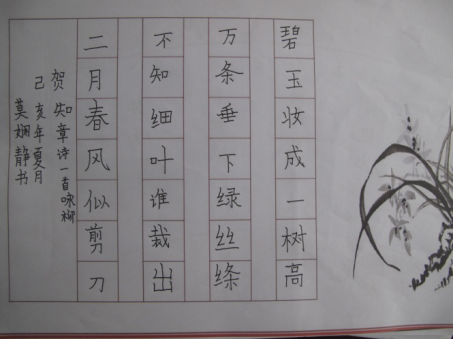 碧玉妆成一树高
万条垂下绿丝绦
不知细叶谁裁出
二月春风似剪刀
贺知章诗一首咏柳
己亥年夏月
莫娴静书